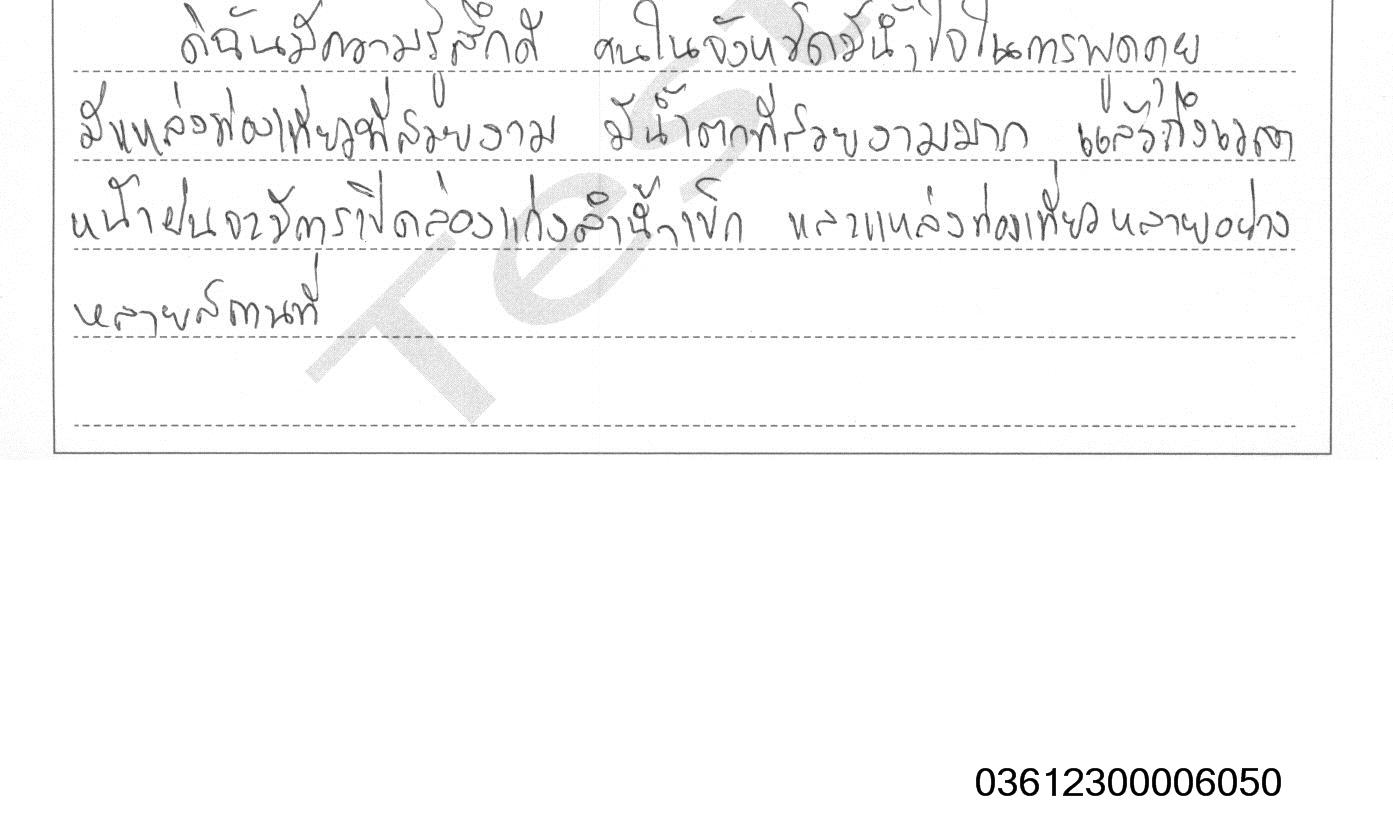 ดิฉันมีความรู้สึกดี คนในจังหวัดมีน้ำใจในการพดคย
มีแหล่งท่องเที่ยวที่สวยงาม มีน้ำตกที่สวยงามมาก แล้วถึงเวลา
หน้าฝนจะมีการเปิดล่องแก่งลำน้ำเข็ก หลายแหล่งท่องเที่ยวหลายอย่าง
หลายสถานที่
Test
03612300006050